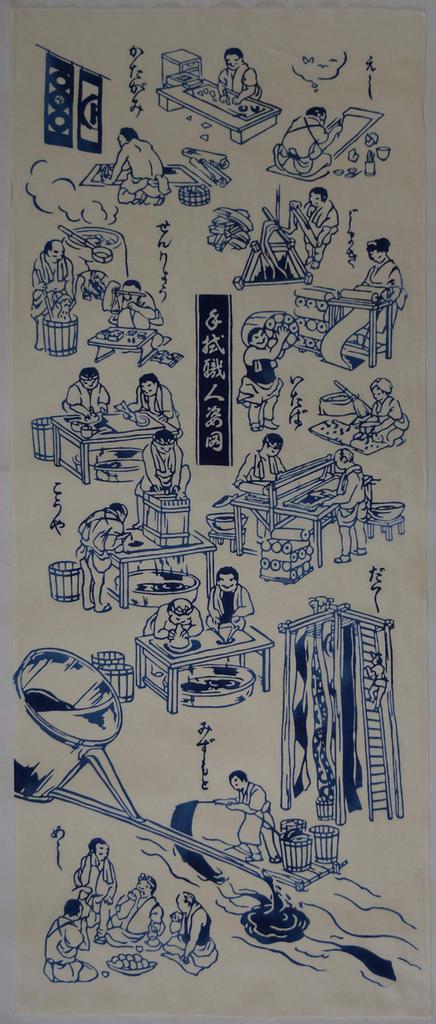 えーし
かたがみ
じまき
せんりょう
手拭職人姿図
いたば
こうや
みずもと
めーし